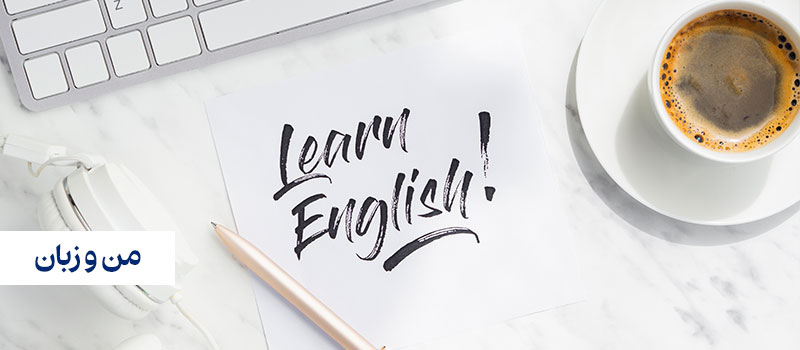 Learn
English!
من و زبان